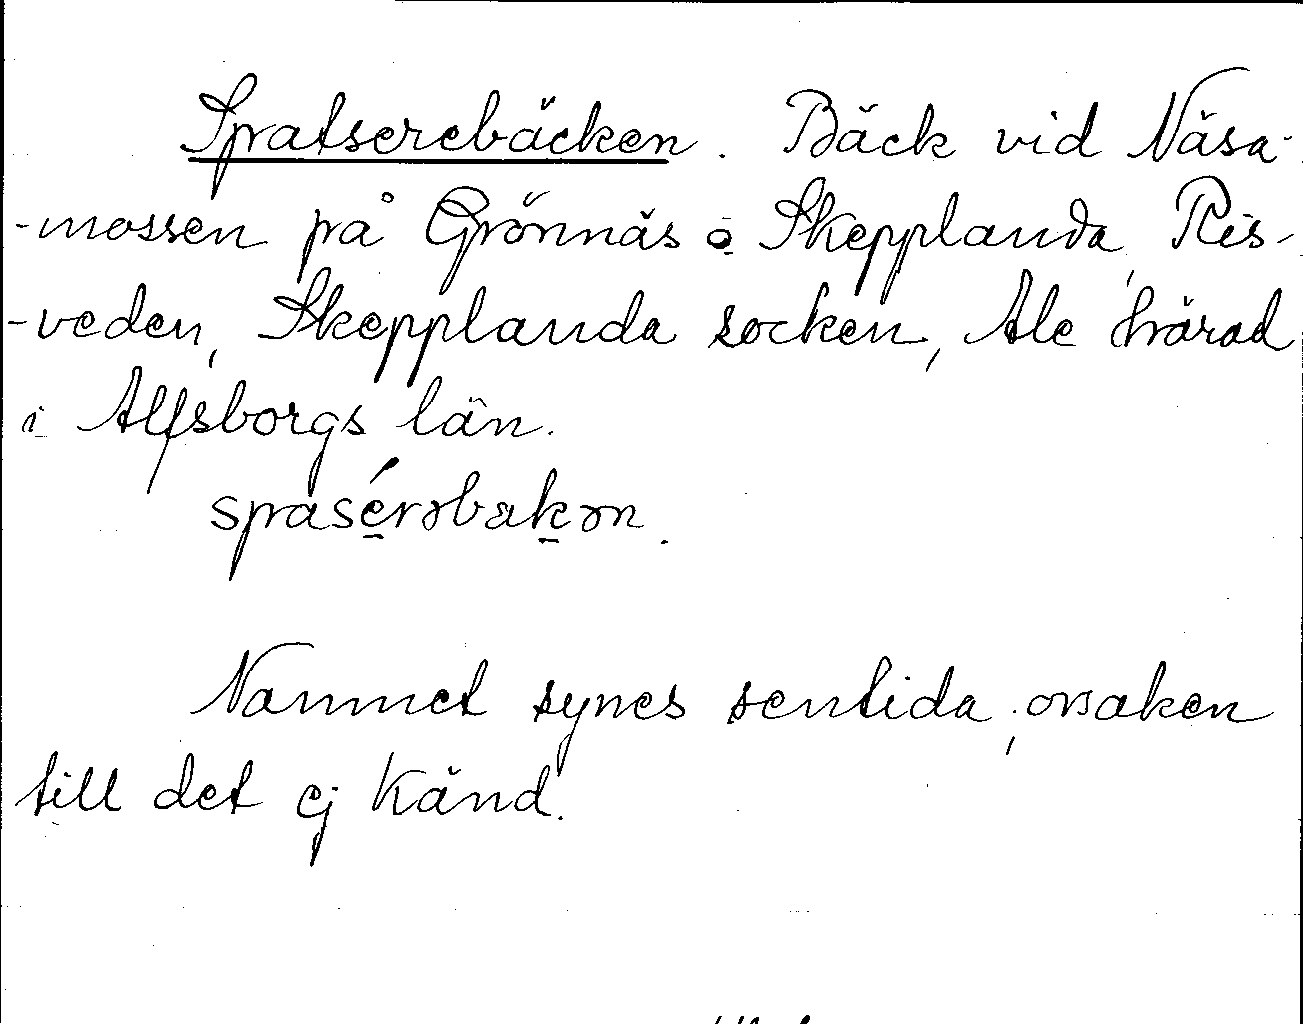 Spatserebäcken. Bäck vid Näsa-
-mossen på Grönnäs o Skepplanda, Ris-
-veden, Skepplanda socken, Ale härad
i Älfsborgs län.
spasérəbakən.
Namnet synes sentida, orsaken
till det ej känd.